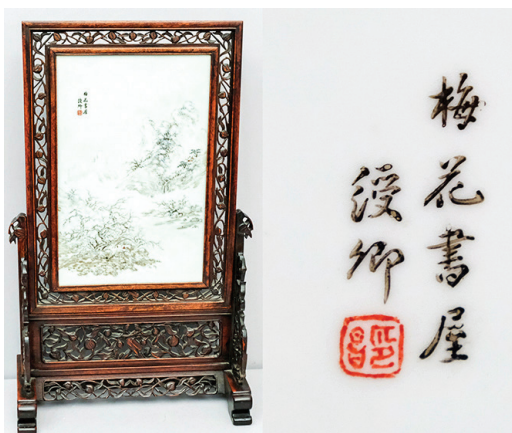 梅花書屋
綬卿